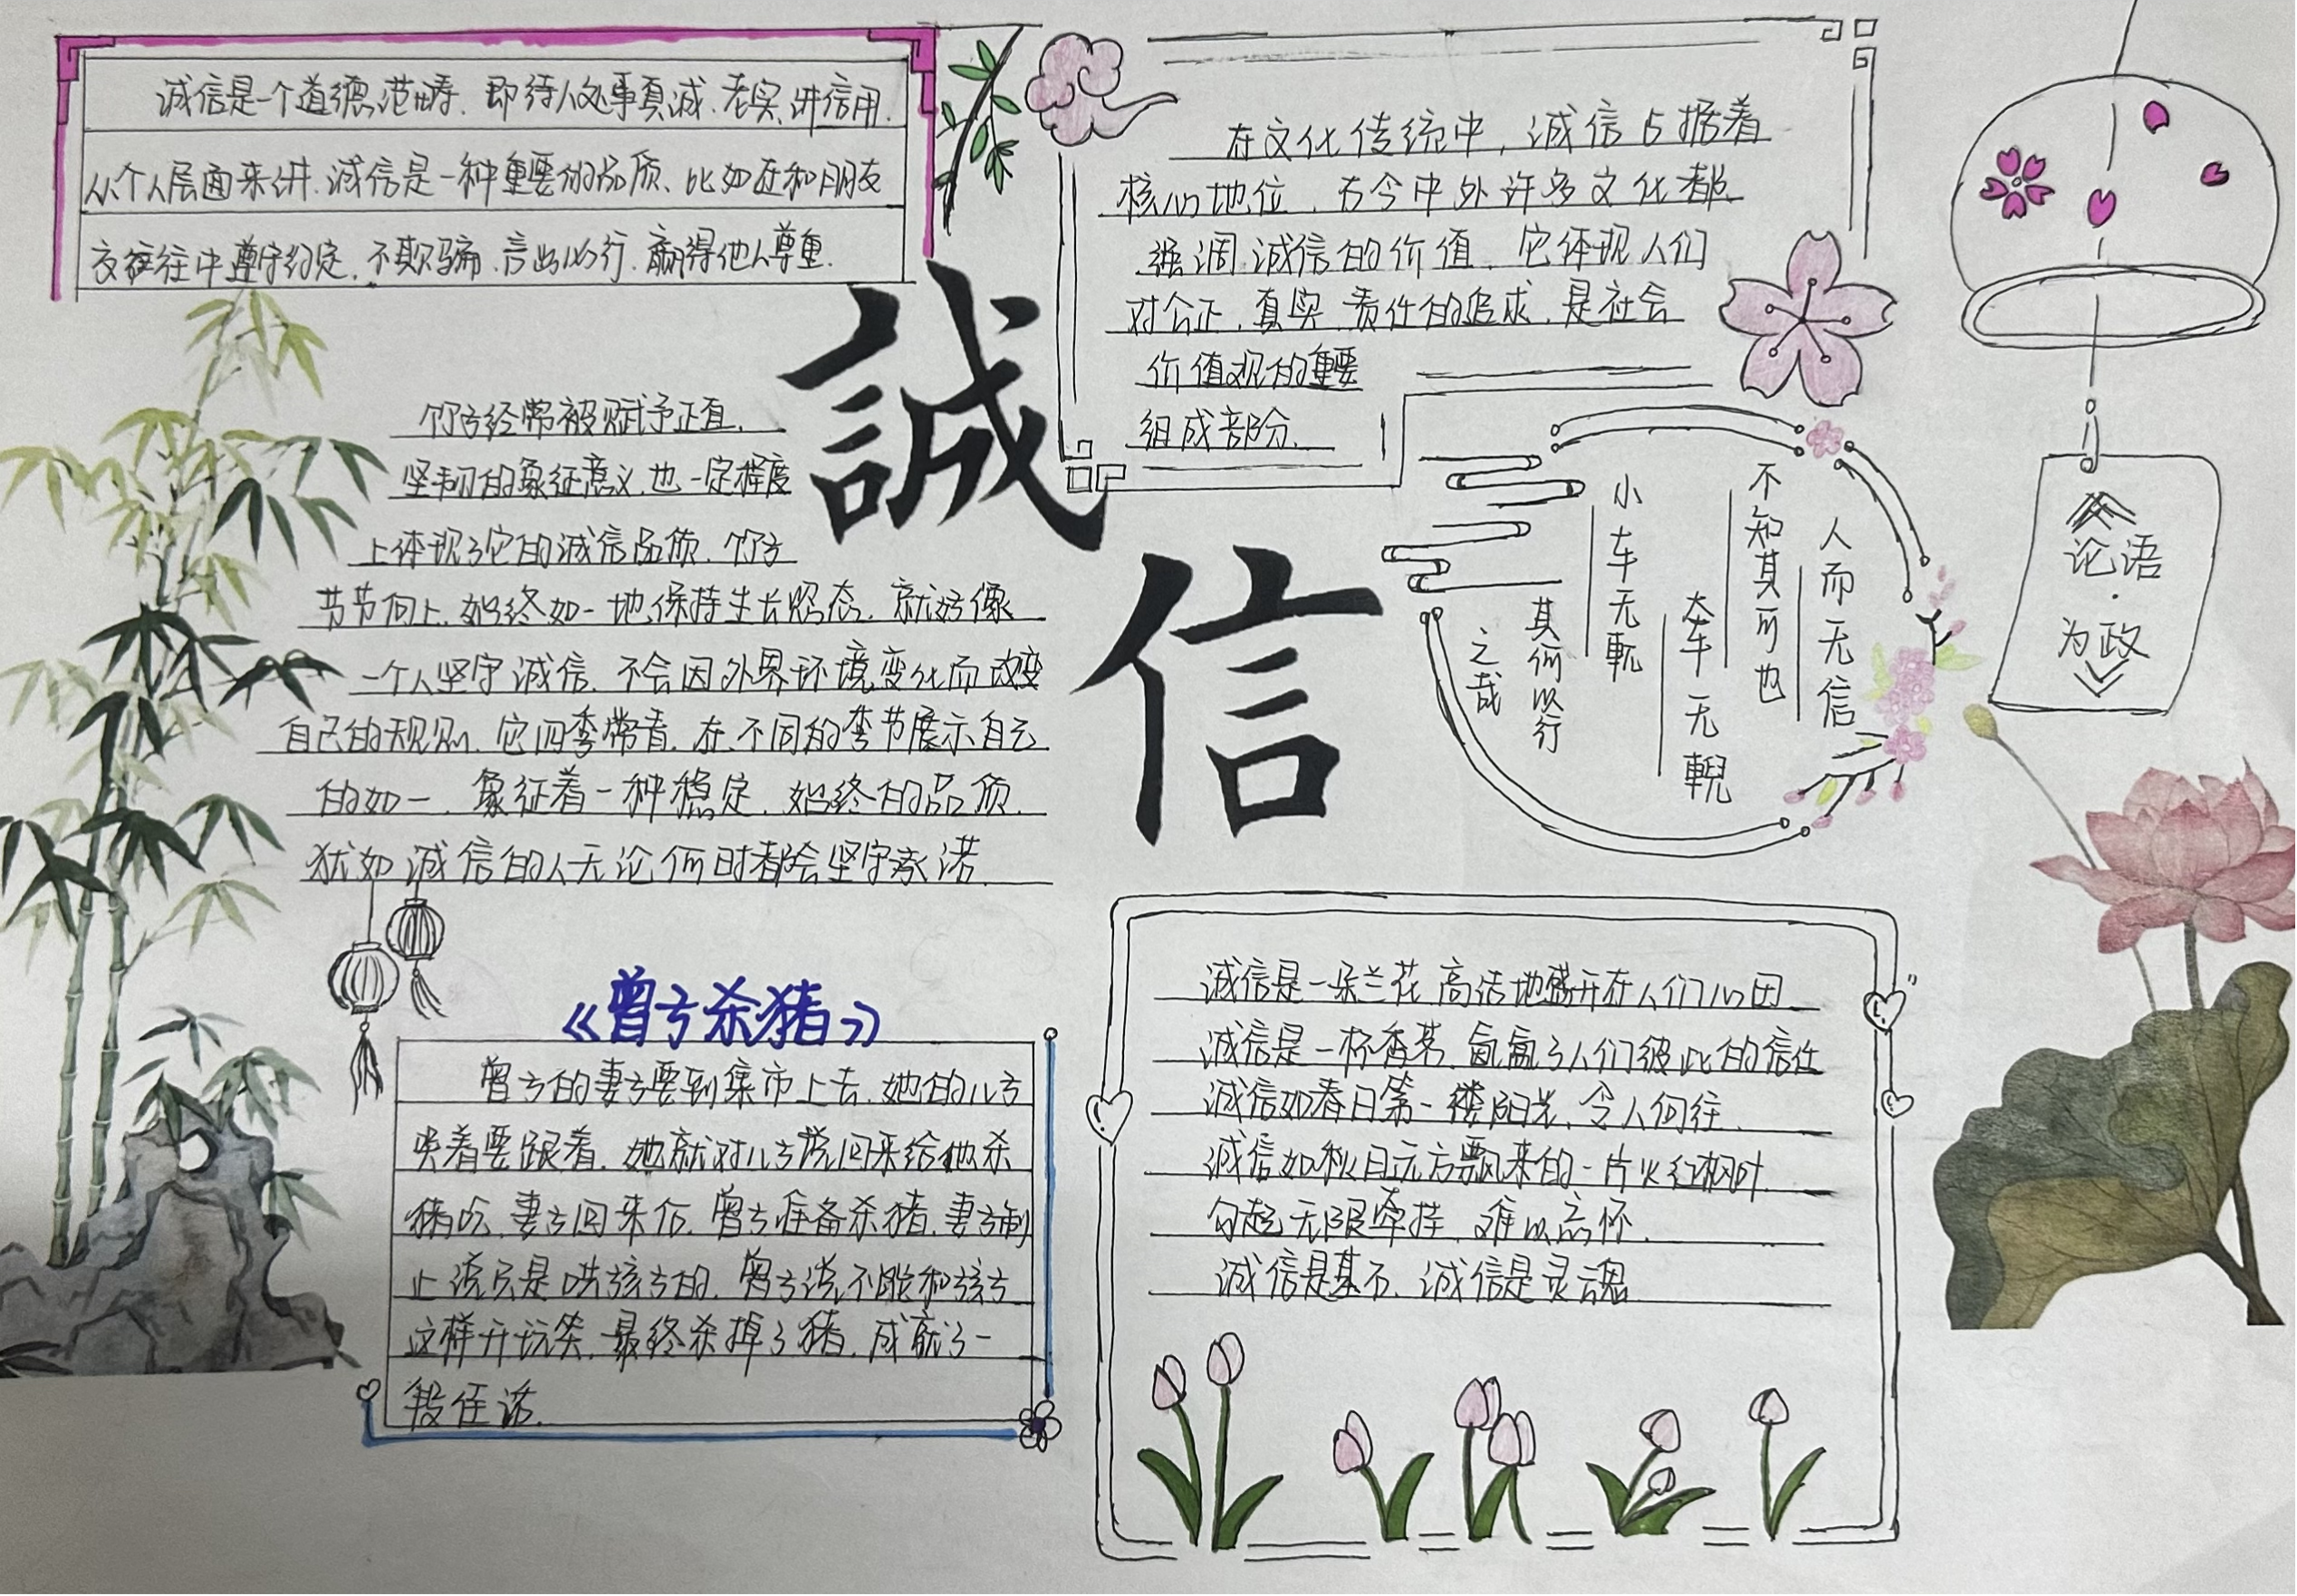 诚信是一个道德范畴、即待人处事真诚、老实、讲信用、
从个人层面来讲、诚信是一种重要的品质、比如在和朋友
交往往中遵守约定、不欺骗、言出必行、赢得他人尊重.
誠
信
竹子经常被赋予正直、
坚韧的象征意义、也一定程度
上体现了它的诚信品质、竹子
节节向上、始终如一地保持生长姿态、就好像
一个人坚守诚信、不会因外界环境变化而改变
自己的规则、它四季常青、在不同的季节展示自己
的如一、象征着一种稳定、始终的品质、
犹如诚信的人无论何时都会坚守承诺.
在文化传统中，诚信占据着
核心地位、古今中外许多文化都
强调诚信的价值、它体现人们
对公正、真实、责任的追求、是社会
价值观的重要
组成部分.
人而无信
不知其可也
大车无輗
小车无軏
其何以行
之哉
《论语·为政》
《曾子杀猪》
曾子的妻子要到集市上去、她的儿子
哭着要跟着、她就对儿子说回来给他杀
猪吃、妻子回来后、曾子准备杀猪、妻子制
止说只是哄孩子的、曾子说不能和孩子
这样开玩笑、最终杀掉了猪、成就了一
段佳话.
诚信是一朵兰花、高洁地盛开在人们心田
诚信是一杯香茗、氤氲了人们彼此的信任
诚信如春日第一缕阳光、令人向往
诚信如秋日远方飘来的一片火红枫叶
勾起无限牵挂、难以忘怀.
诚信是基石、诚信是灵魂